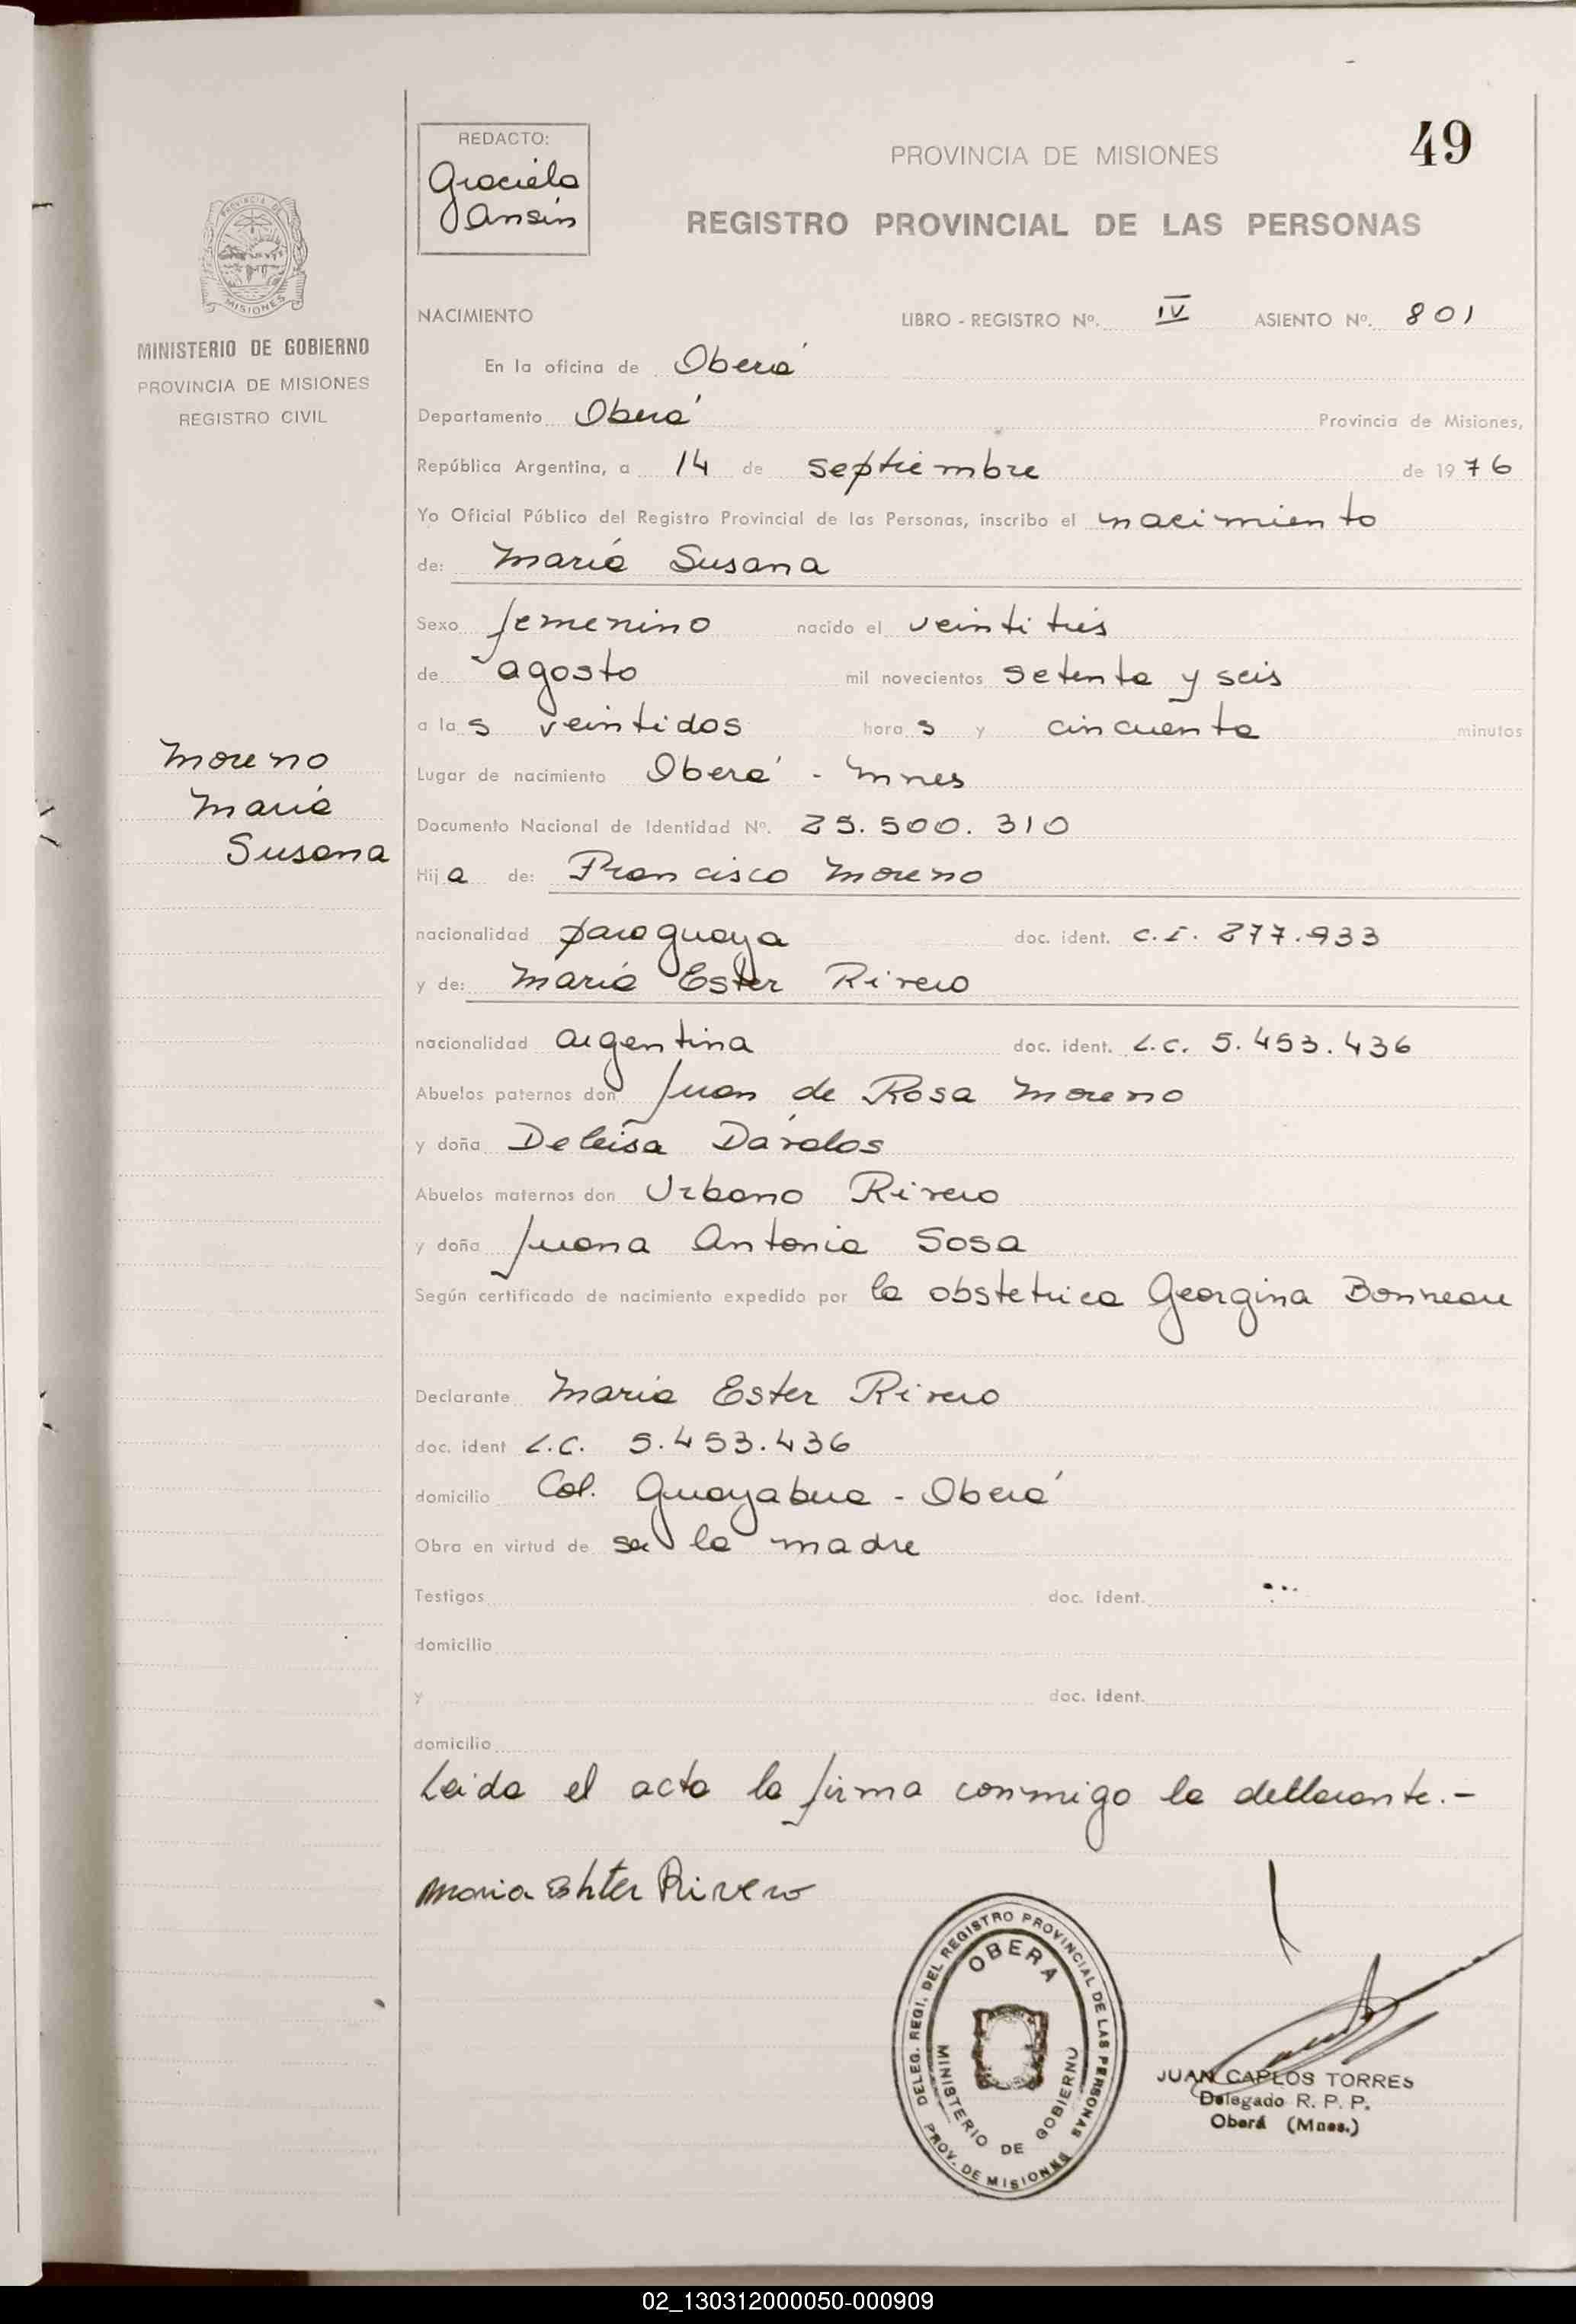 49
REDACTO:
Graciela
Ansin
PROVINCIA DE MISIONES
REGISTRO PROVINCIAL DE LAS PERSONAS
PROVINCIA DE
MISIONES
MINISTERIO DE GOBIERNO
PROVINCIA DE MISIONES
REGISTRO CIVIL
Moreno
María
Susana
NACIMIENTO LIBRO - REGISTRO Nº. IV ASIENTO Nº. 801
En la oficina de Oberá
Departamento Oberá Provincia de Misiones,
República Argentina, a 14 de septiembre de 1976
Yo Oficial Público del Registro Provincial de las Personas, inscribo el nacimiento
de: María Susana
Sexo femenino nacido el veintitrés
de agosto mil novecientos setenta y seis
a las veintidos horas y cincuenta minutos
Lugar de nacimiento Oberá - Mnes
Documento Nacional de Identidad Nº. 25.500.310
Hija de: Francisco Moreno
nacionalidad paraguaya doc. ident. C.I. 277.933
y de: María Ester Rivero
nacionalidad argentina doc. ident. L.C. 5.453.436
Abuelos paternos don Juan de Rosa Moreno
y doña Dávalos
Abuelos maternos don Urbano Rivero
y doña Juana Antonia Sosa
Según certificado de nacimiento expedido por la obstetrica Georgina Bonneau
Declarante María Ester Rivero
doc. ident L.C. 5.453.436
domicilio Col. Guayabera - Oberá
Obra en virtud de ser la madre
Testigos doc. ident. ...
domicilio
y doc. ident.
domicilio
Leida el acta la firma conmigo la declarante.-
Maria Ehter Rivero
DELEG. REGI. DEL REGISTRO PROVINCIAL DE LAS PERSONAS
PROV. DE MISIONES
OBERA
MINISTERIO DE GOBIERNO
JUAN CARLOS TORRES
Delegado R. P. P.
Oberá (Mnes.)
02_130312000050-000909